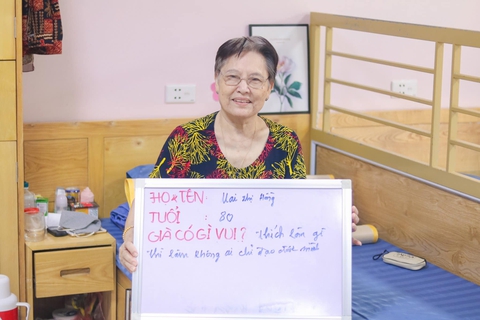 HỌ & TÊN: Mai Thị Đặng
TUỔI : 80
GIÀ CÓ GÌ VUI? Thích làm gì
thì làm không ai chỉ đạo mình